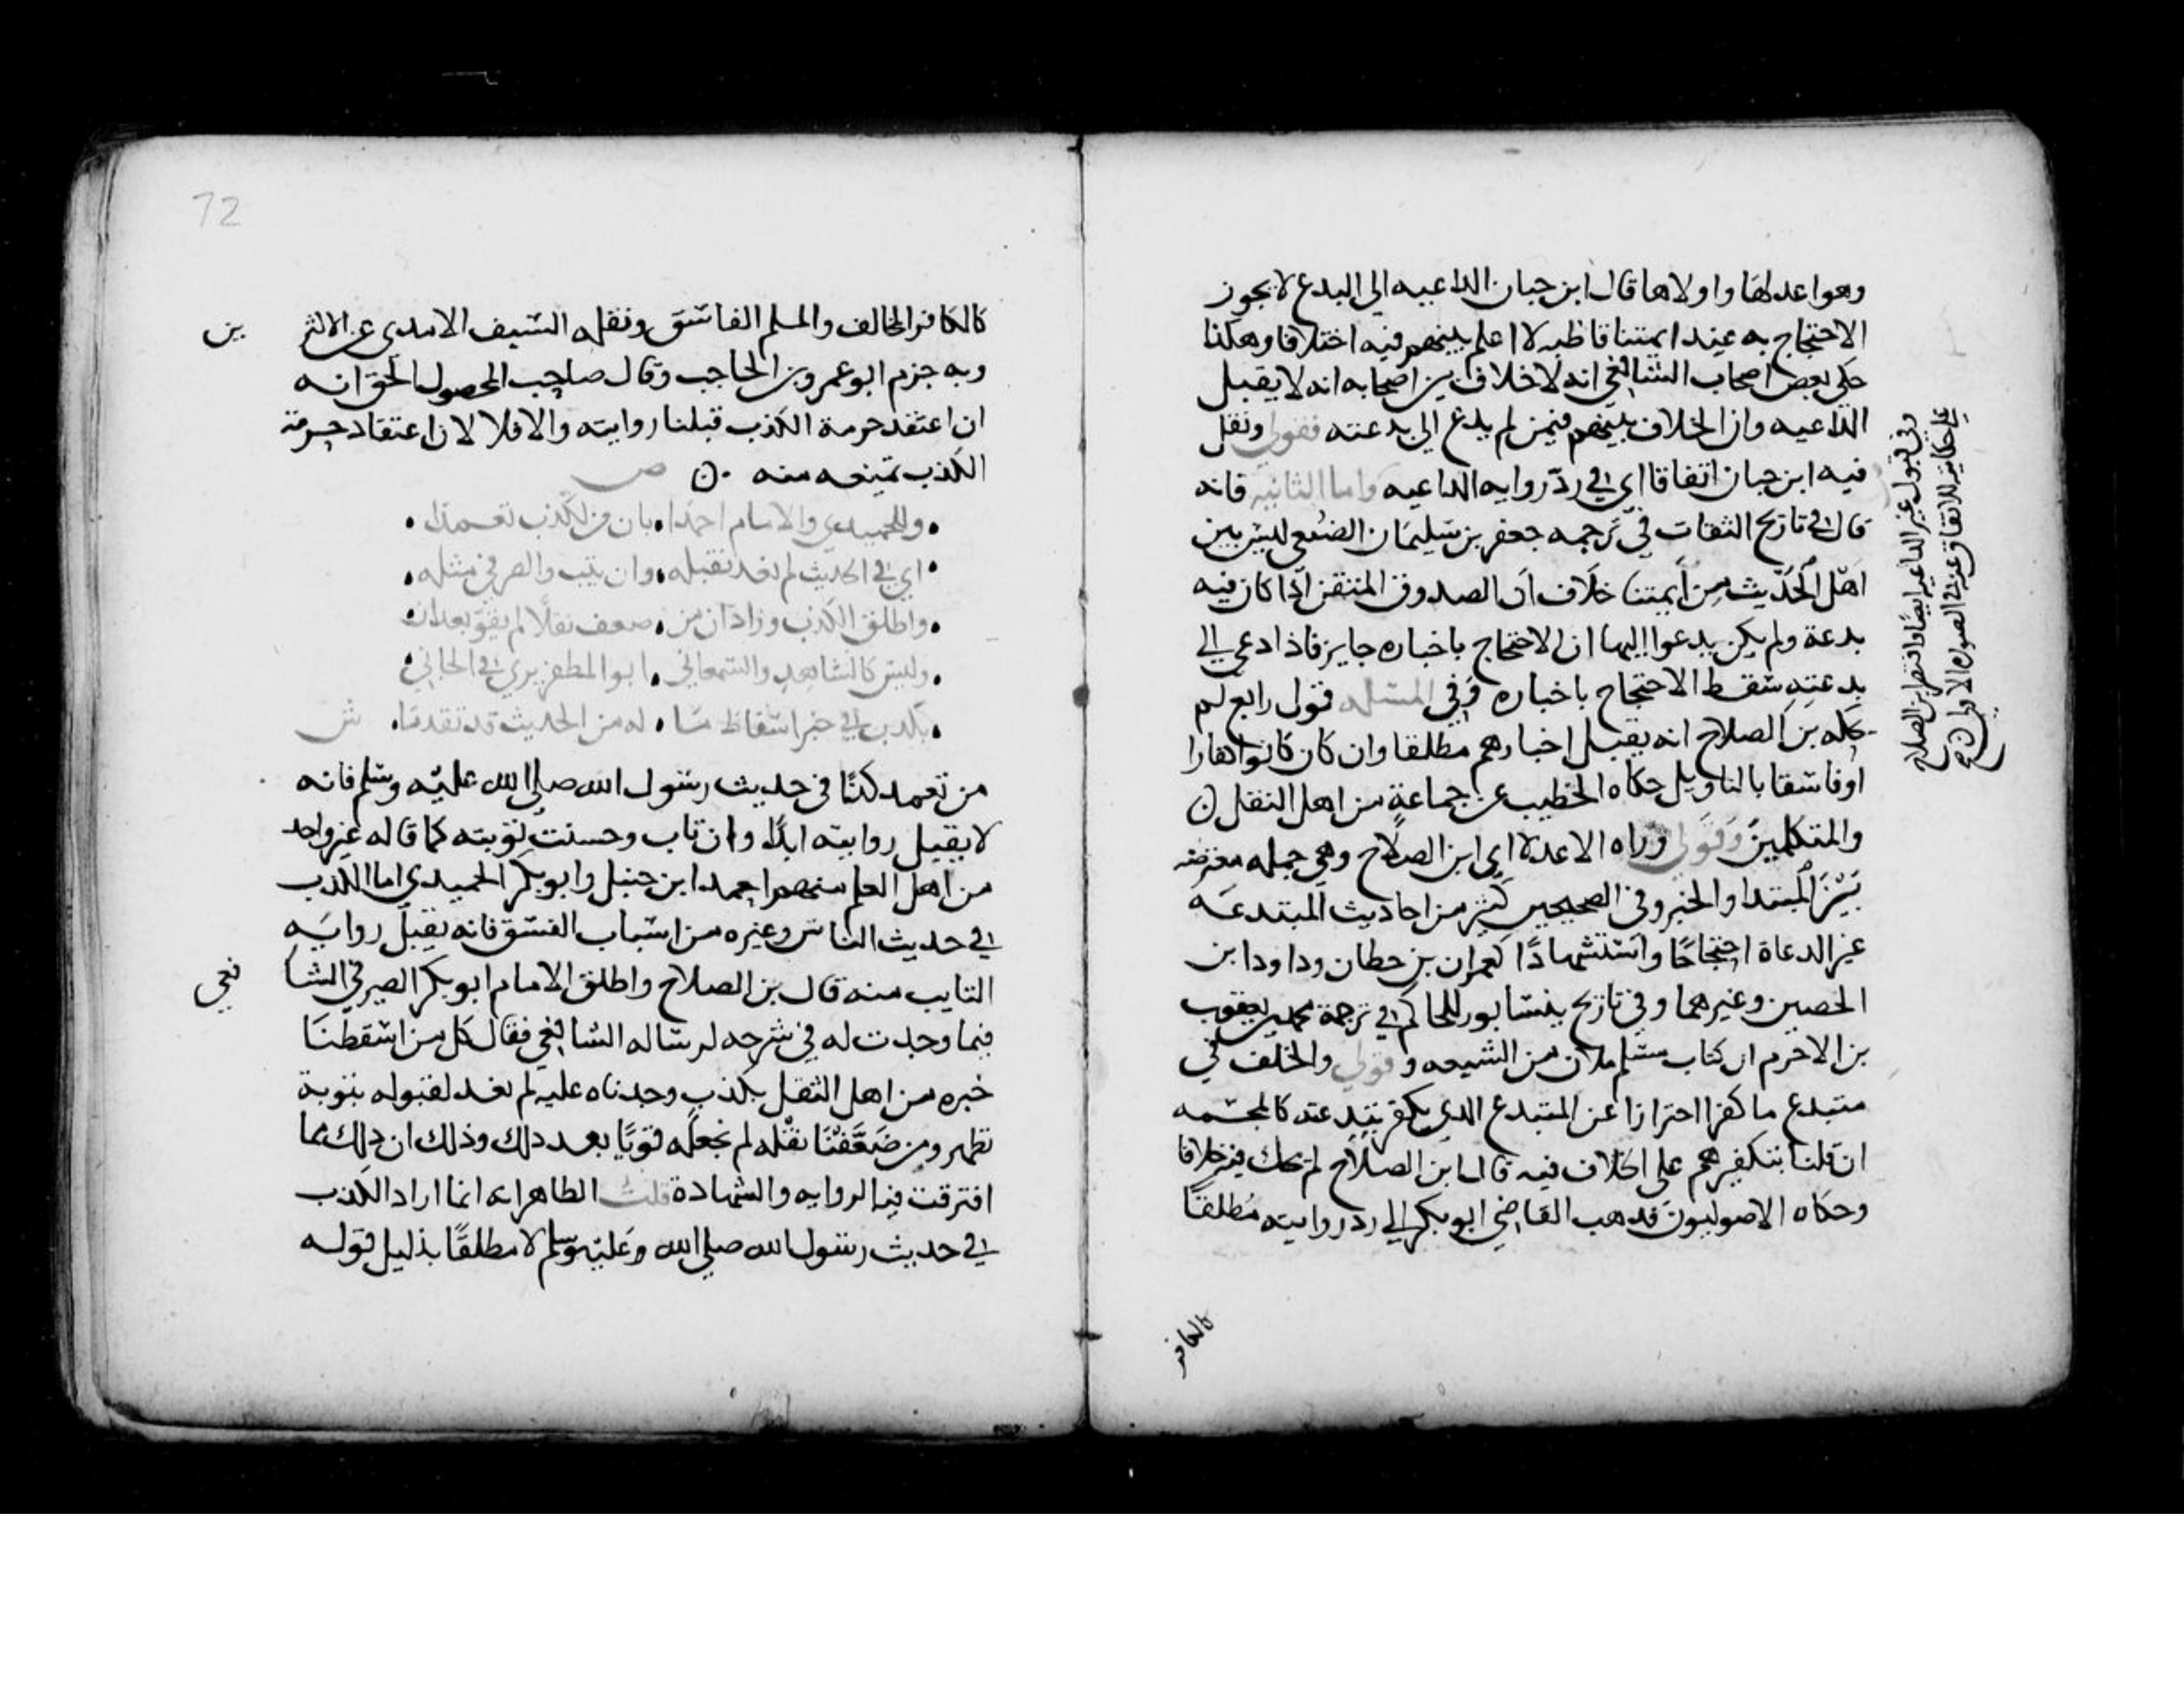 وهو اعدلها واولاها قال ابن حبان الداعيه الى البدع لا يجوز
الاحتجاج به عند ايمتنا قاطبه لا اعلم بينهم فيه اختلافا وهكذا
حكى بعض اصحاب الشافعي انه لا خلاف بين اصحابه انه لا يقبل
الداعيه وان الخلاف بينهم فيمن لم يدع الى بدعته فقولي ونقل
فيه ابن حبان اتفاقا اي في ردّ روايه الداعيه واما الثانيه فانه
قال في تاريخ الثقات في ترجمه جعفر بن سليمان الضبعي ليس بين
اهل الحديث من ايمتنا خلاف ان الصدوق المتقن اذا كان فيه
بدعة ولم يكن يدعوا اليها ان الاحتجاج باخباره جايز فاذا دعى الى
بدعته سقط الاحتجاج باخباره وفي المسئله قول رابع لم
يحكه بن الصلاح انه يقبل اخبارهم مطلقا وان كان كانوا كفارا
او فاسقا بالتاويل حكاه الخطيب عن جماعة من اهل النقل
والمتكلمين وقولي وراه الاعدلا اي ابن الصلاح وهي جمله معترضه
بين المبتدا والخبر وفي الصحيحين كثير من احاديث المبتدعه
غير الدعاة احتجاجًا واستشهادًا كعمران بن حطان وداود ابن
الحصين وغيرهما وفي تاريخ نيسابور للحاكم في ترجمة محمد بن يعقوب
بن الاخرم ان كتاب مسلم ملان من الشيعه وقولي والخلف في
مبتدع ما كفرا احترازا عن المبتدع الذي يكفر ببدعته كالمجسمه
ان قلنا بتكفيرهم على الخلاف فيه قال ابن الصلاح لم يحك فيه خلافا
وحكاه الاصوليون فذهب القاضي ابو بكر الى رد روايته مطلقًا
كالكافر
وفي قبول غير الداعيه ايضا واقتصر ابن الصلاح
على حكايته للاتفاق عنه في الصورة الاولى
72
كالكافر المخالف والمسلم الفاسق ونقله السيف الامدي عن الاكثرين
وبه جزم ابو عمرو بن الحاجب وقال صاحب المحصول الحق انه
ان اعتقد حرمة الكذب قبلنا روايته والا فلا لان اعتقاد حرمة
الكذب تمنعه منه ص
وللحميدي والامام احمدا بان من لكذب تعمدا
اي في الحديث لم نعد نقبله وان يتب والصيرفي مثله
واطلق الكذب وزاد ان من ضعف نقلا لم يقو بعد ان
وليس كالشاهد والسمعاني ابو المظفر يرى في الجاني
بكذب في خبر اسقاط ما له من الحديث قد تقدما ش
من تعمد كذبًا في حديث رسول الله صلى الله عليه وسلم فانه
لا يقبل روايته ابدًا وان تاب وحسنت توبته كما قاله غير واحد
من اهل العلم منهم احمد ابن حنبل وابو بكر الحميدي اما الكذب
في حديث الناس وغيره من اسباب الفسق فانه يقبل روايه
التايب منه قال بن الصلاح واطلق الامام ابو بكر الصيرفي الشافعي
فيما وجدت له في شرحه لرساله الشافعي فقال كل من اسقطنا
خبره من اهل النقل بكذب وجدناه عليه لم نعد لقبوله بتوبة
تظهر ومن ضعَّفنا نقله لم نجعله قويًا بعد ذلك وذلك ان ذلك مما
افترقت فيه الروايه والشهادة قلت الظاهر انه انما اراد الكذب
في حديث رسول الله صلى الله وعليه وسلم لا مطلقًا بدليل قوله